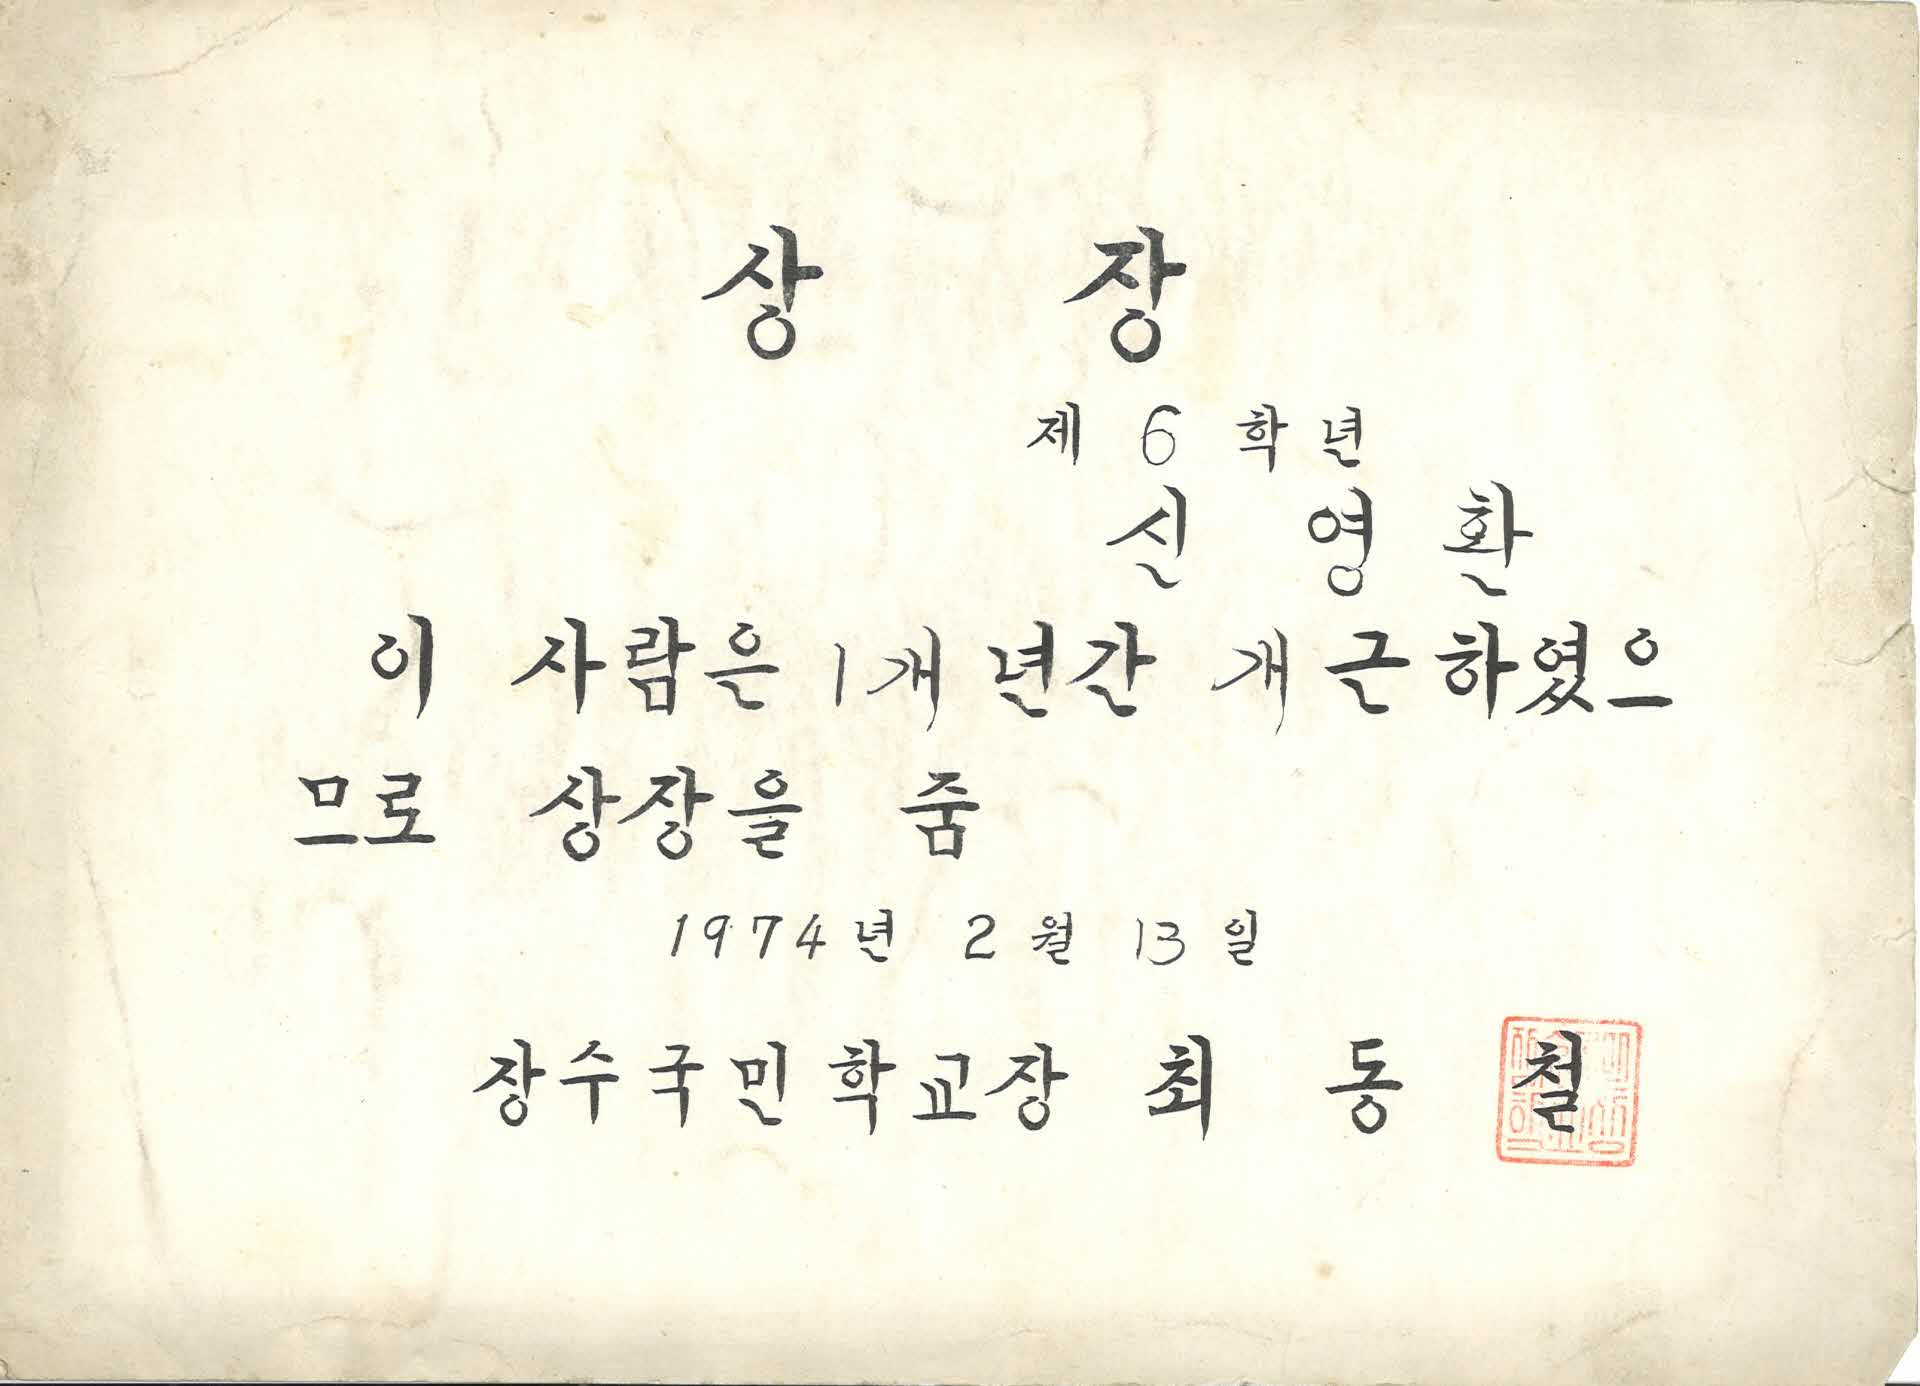 상 장
제 6 학년
신 영 환
이 사람은 1개 년간 개근하였으
므로 상장을 줌
1974년 2월 13일
장수국민학교장 최 동 철